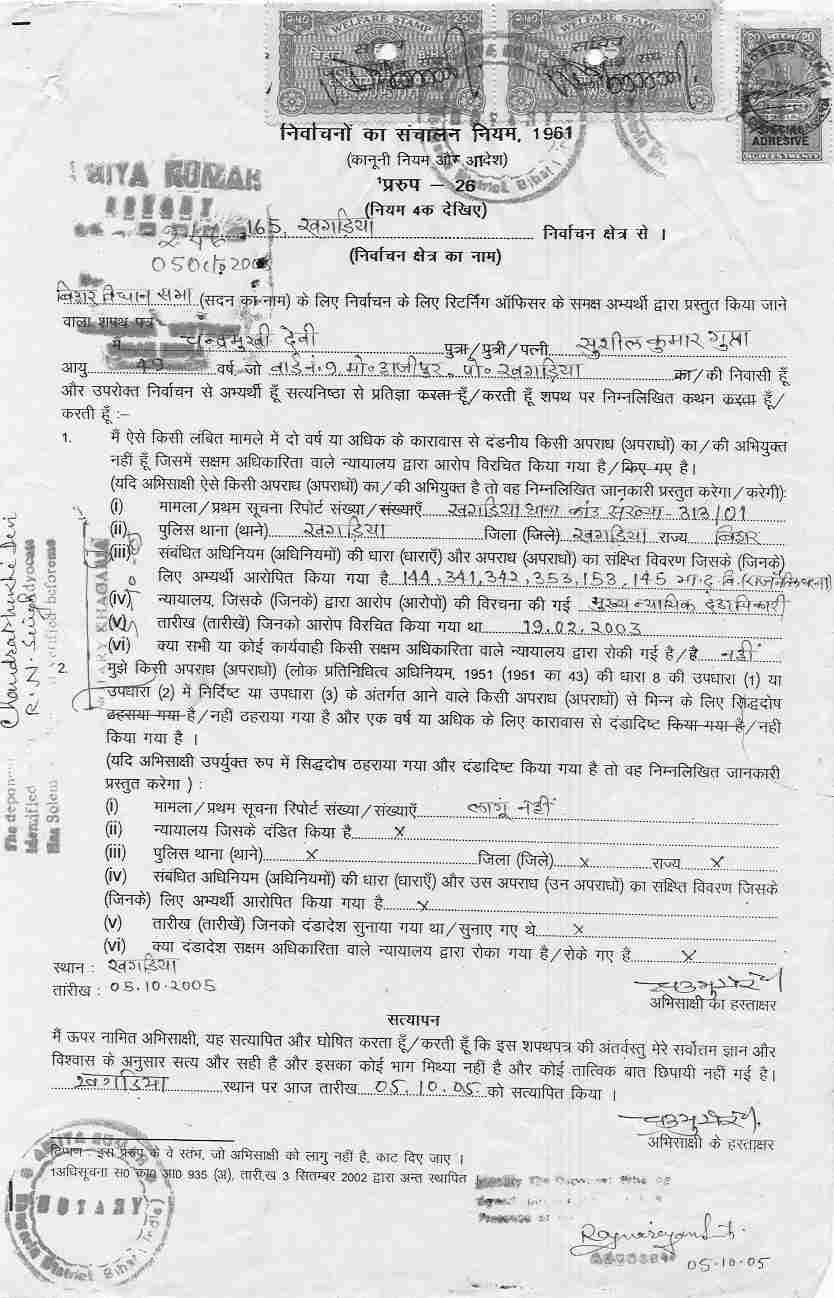 2.50 WELFARE STAMP 2.50 WELFARE STAMP 2.50
20 20
SPECIAL ADHESIVE
RUPEES TWENTY
निर्वाचनों का संचालन नियम, 1961
(कानूनी नियम और आदेश)
¹प्ररुप – 26
(नियम 4क देखिए)
165, खगड़िया निर्वाचन क्षेत्र से ।
(निर्वाचन क्षेत्र का नाम)
बिहार विधान सभा (सदन का नाम) के लिए निर्वाचन के लिए रिटर्निंग ऑफिसर के समक्ष अभ्यर्थी द्वारा प्रस्तुत किया जाने
वाला शपथ पत्र
मैं चन्द्रमुखी देवी पुत्रा/पुत्री/पत्नी सुशील कुमार गुप्ता
आयु 49 वर्ष, जो वार्ड नं॰ 9, मो॰ हाजीपुर, पो॰ खगड़िया का/की निवासी हूँ
और उपरोक्त निर्वाचन से अभ्यर्थी हूँ सत्यनिष्ठा से प्रतिज्ञा करता हूँ/करती हूँ शपथ पर निम्नलिखित कथन करता हूँ/
करती हूँ :–
1. मैं ऐसे किसी लंबित मामले में दो वर्ष या अधिक के कारावास से दंडनीय किसी अपराध (अपराधों) का/की अभियुक्त
नहीं हूँ जिसमें सक्षम अधिकारिता वाले न्यायालय द्वारा आरोप विरचित किया गया है/किए गए है।
(यदि अभिसाक्षी ऐसे किसी अपराध (अपराधों) का/की अभियुक्त है तो वह निम्नलिखित जानकारी प्रस्तुत करेगा/करेगी):
(i) मामला/प्रथम सूचना रिपोर्ट संख्या/संख्याएँ खगड़िया थाना कांड संख्या- 313/01
(ii) पुलिस थाना (थाने) खगड़िया जिला (जिले) खगड़िया राज्य बिहार
(iii) संबंधित अधिनियम (अधिनियमों) की धारा (धाराएँ) और अपराध (अपराधों) का संक्ष्प्ति विवरण जिसके (जिनके)
लिए अभ्यर्थी आरोपित किया गया है 144, 341, 342, 353, 153, 145 भा॰द॰वि॰
(iv) न्यायालय, जिसके (जिनके) द्वारा आरोप (आरोपों) की विरचना की गई मुख्य न्यायिक दंडाधिकारी
(v) तारीख (तारीखें) जिनको आरोप विरचित किया गया था 19.02.2003
(vi) क्या सभी या कोई कार्यवाही किसी सक्षम अधिकारिता वाले न्यायालय द्वारा रोकी गई है/है नहीं
2. मुझे किसी अपराध (अपराधों) (लोक प्रतिनिधित्व अधिनियम, 1951 (1951 का 43) की धारा 8 की उपधारा (1) या
उपधारा (2) में निर्दिष्ट या उपधारा (3) के अंतर्गत आने वाले किसी अपराध (अपराधों) से भिन्न के लिए सिद्धदोष
ठहराया गया है/नहीं ठहराया गया है और एक वर्ष या अधिक के लिए कारावास से दंडादिष्ट किया गया है/नहीं
किया गया है ।
(यदि अभिसाक्षी उपर्युक्त रुप में सिद्धदोष ठहराया गया और दंडादिष्ट किया गया है तो वह निम्नलिखित जानकारी
प्रस्तुत करेगा ) :
(i) मामला/प्रथम सूचना रिपोर्ट संख्या/संख्याएँ लागू नहीं
(ii) न्यायालय जिसके दंडित किया है x
(iii) पुलिस थाना (थाने) x जिला (जिले) x राज्य x
(iv) संबंधित अधिनियम (अधिनियमों) की धारा (धाराएँ) और उस अपराध (उन अपराधों) का संक्ष्प्ति विवरण जिसके
(जिनके) लिए अभ्यर्थी आरोपित किया गया है x
(v) तारीख (तारीखें) जिनको दंडादेश सुनाया गया था/सुनाए गए थे x
(vi) क्या दंडादेश सक्षम अधिकारिता वाले न्यायालय द्वारा रोका गया है/रोके गए है x
स्थान : खगड़िया
तारीख : 05.10.2005
अभिसाक्षी का हस्ताक्षर
सत्यापन
मैं ऊपर नामित अभिसाक्षी, यह सत्यापित और घोषित करता हूँ/करती हूँ कि इस शपथपत्र की अंतर्वस्तु मेरे सर्वोत्तम ज्ञान और
विश्वास के अनुसार सत्य और सही है और इसका कोई भाग मिथ्या नहीं है और कोई तात्विक बात छिपायी नहीं गई है।
खगड़िया स्थान पर आज तारीख 05.10.05 को सत्यापित किया ।
अभिसाक्षी के हस्ताक्षर
टिप्पण– इस प्ररुप के वे स्तंभ, जो अभिसाक्षी को लागु नहीं है, काट दिए जाए ।
1अधिसूचना स0 का0 आ0 935 (अ), तारी,ख 3 सितम्बर 2002 द्वारा अन्त स्थापित
NOTARY
05.10.05
The depon
Identified
Has Solem
Chandra Mukhi Devi
R.N. Singh
NOTARY KHAGARIA